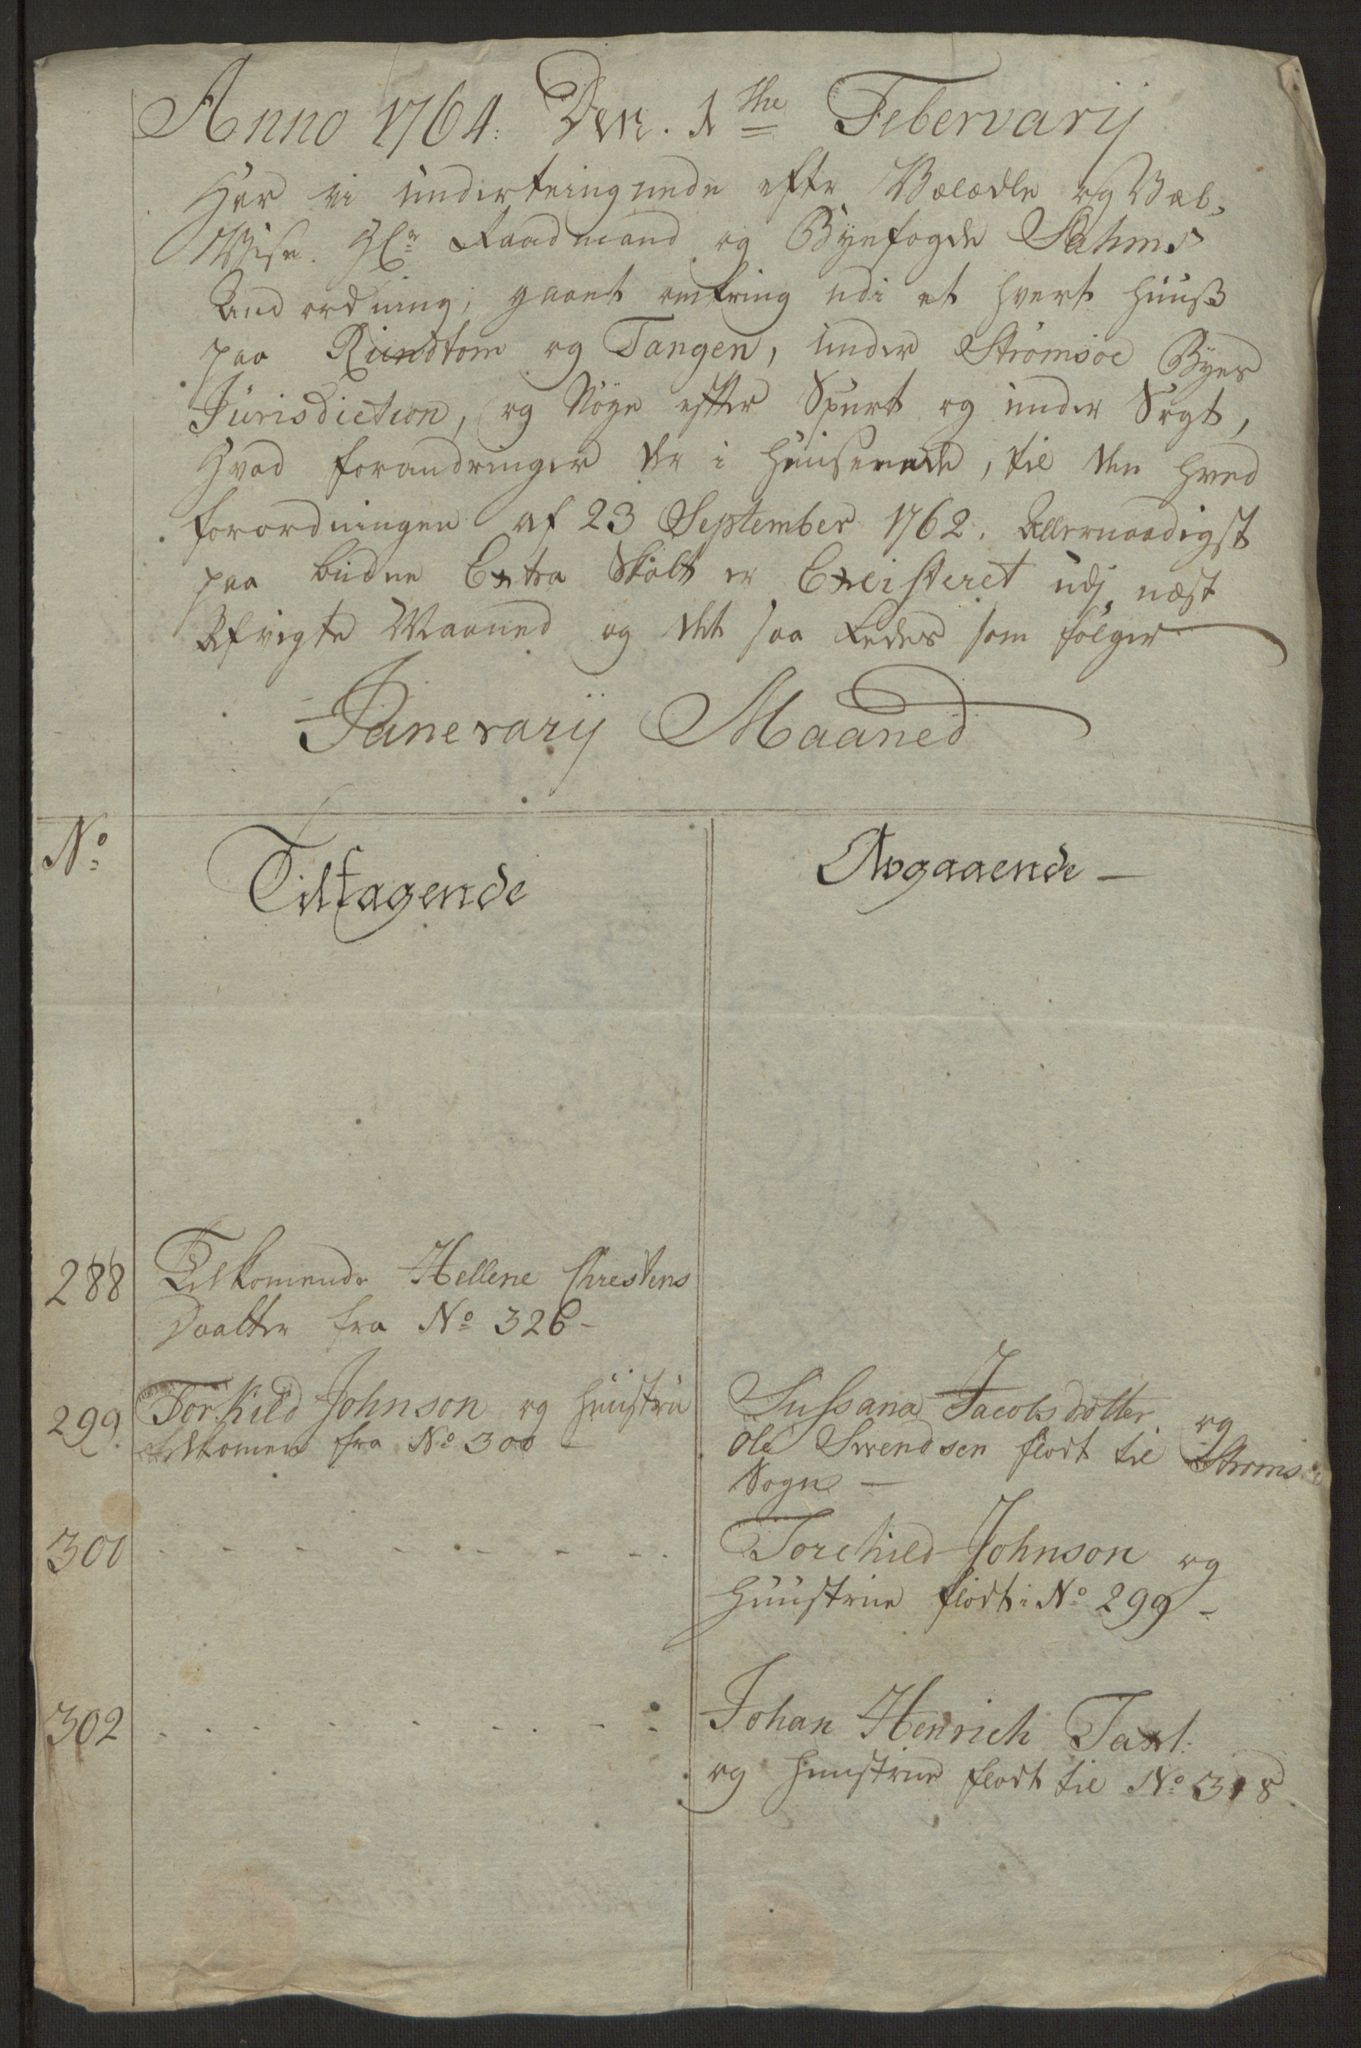 Anno 1764. Den. 1 the Febervarij
Har vi underteingnede efter Velædle og Vel,
Wise. Hr Raadmand og Byefogde Sahms
And ordning, gaaet omkring udi et hvert Huuss
paa Rundtom og Tangen, under Strömsöe Byes
Jurisdiction, og Nöye efter Spurt og under Sögt,
Hvad forandringer der i Huusene, til den hved
forordningen af 23 September 1762. Allernaadigst
paa budne Extra Skatt er Exeisteret udj næst
Afvigte Maaned og det saa ledes som fölger
Janevarij Maaned
No
Tiltagende
Avgaaende —
288 Tilkomende Hellene Chrestens
Daatter fra No 326 –
299 Torkild Johnson og Huustru
tilkomen fra No 300 –
Sussana Jacobsdotter og
Ole Swendsen flödt til Strömsöe
Sogn —
300 - - - - - - - -
Torchild Johnson og
Huustrue flödt i No 299 –
302 - - - - - - - -
Johan Henrich Taxl:
og Huustrue flödt til No 318